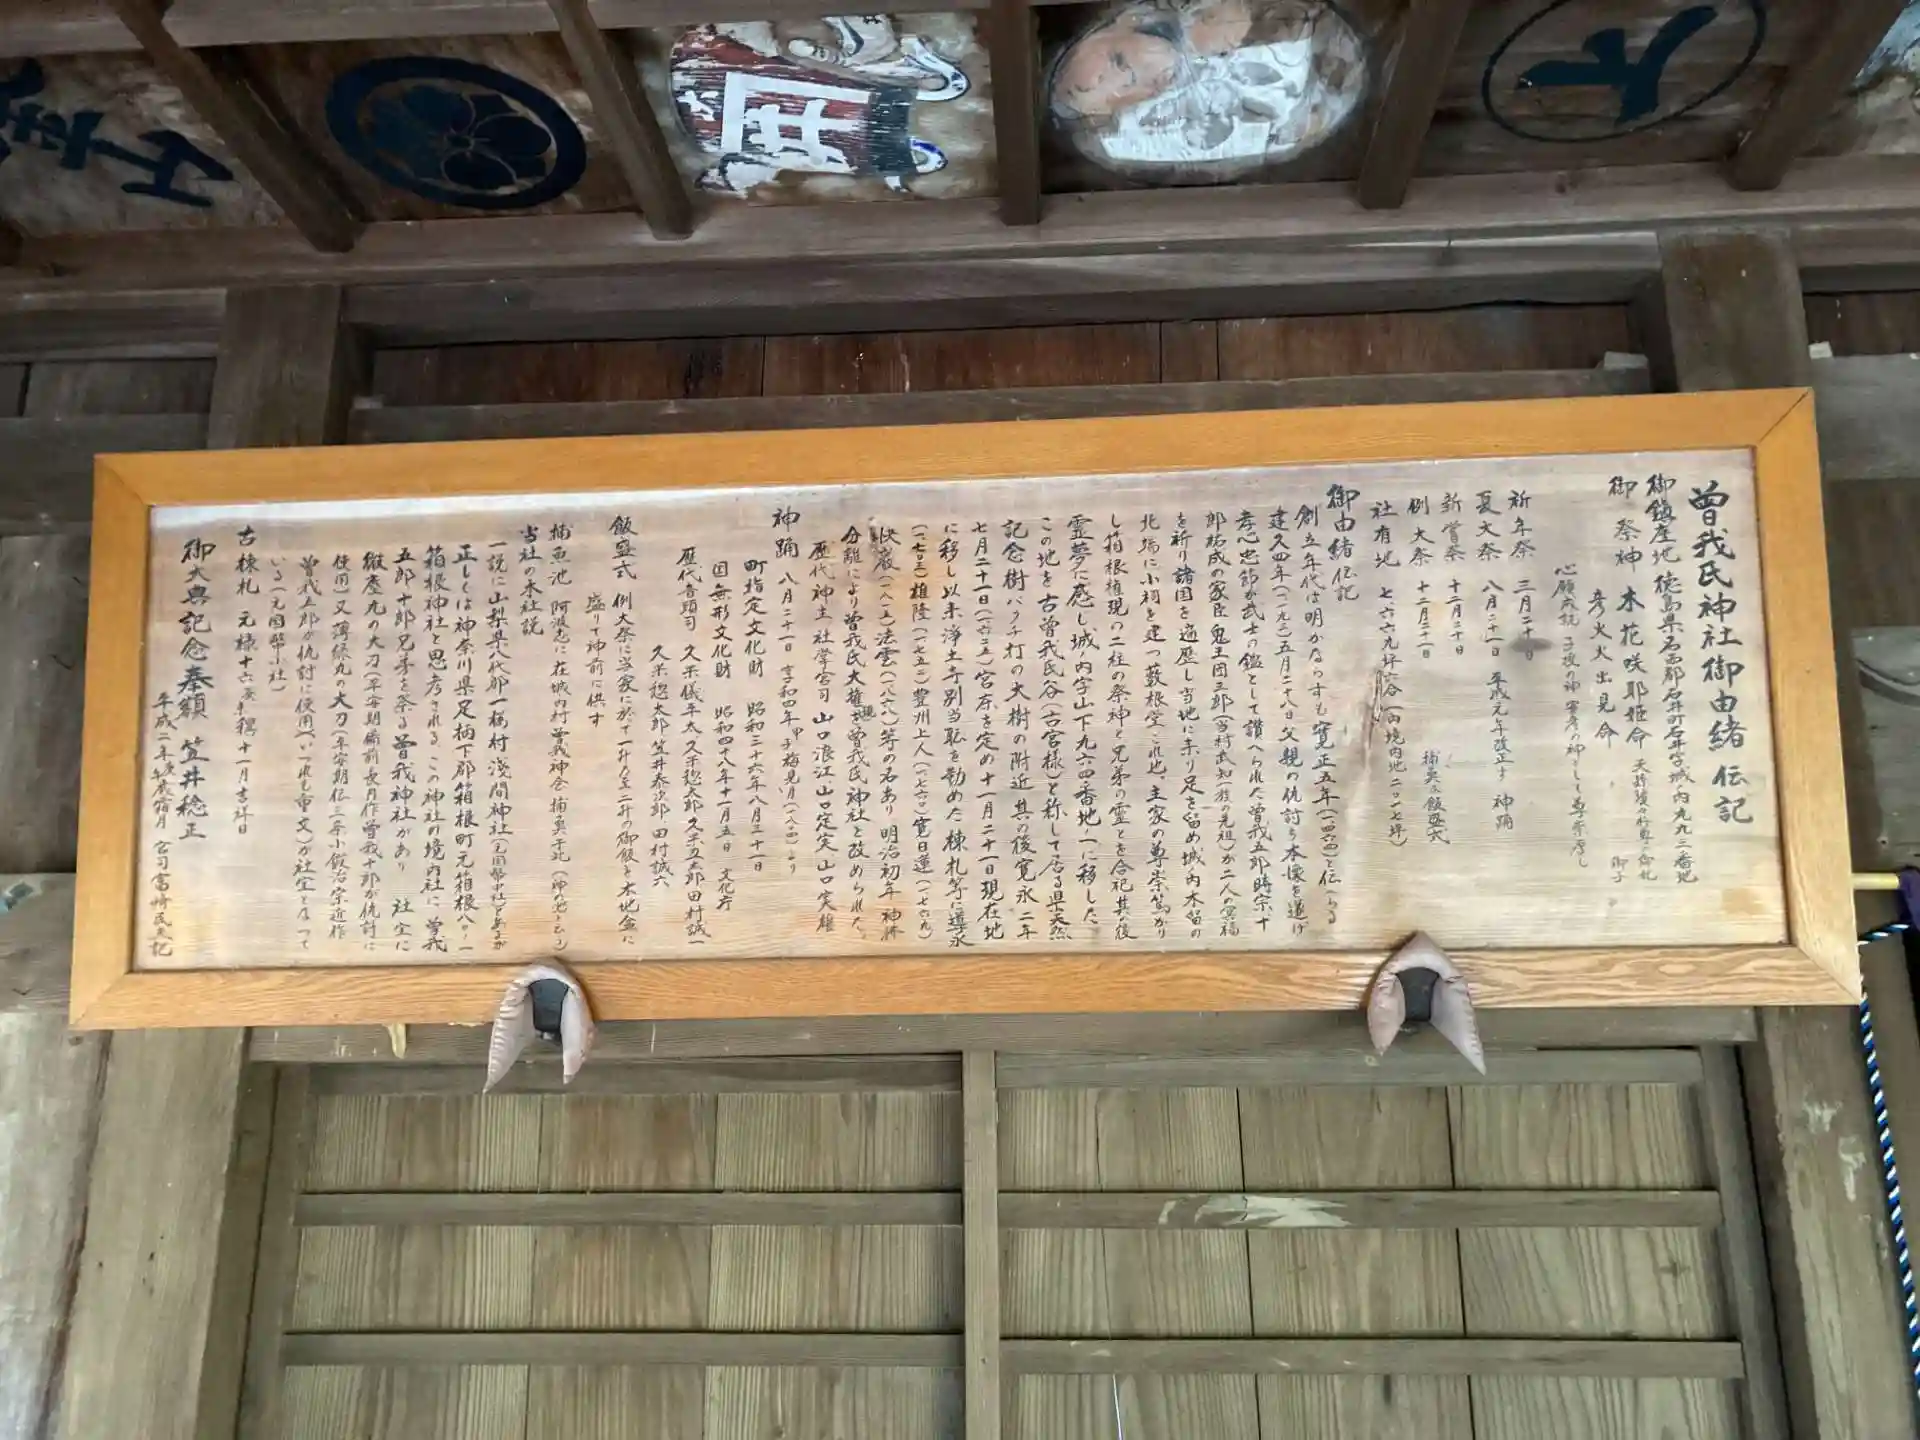 曽我氏神社御由緒伝記
御鎮座地 徳島県名西郡石井町石井字城ノ内九九三番地
御祭神 木花咲耶姫命
彦火火出見命 御子
心願成就 子授の神 尊崇厚し
祈年祭 三月二十日
夏大祭 八月二十一日 平成元年改正す 神踊
新嘗祭 十二月二十日
例大祭 十二月二十一日 捕魚 飯盛式
社有地 七六六九坪六合(内境内地二〇一七坪)
御由緒伝記
創立年代は明かならずも寛正五年(一四六四)と伝へらる
建久四年(一一九三)五月二十八日父親の仇討ち本懐を遂げ
孝心忠節が武士の鑑として讃へられた曽我五郎時宗十
郎祐成の家臣鬼王団三郎(当村武知一族の先祖)が二人の冥福
を祈り諸国を遍歴し当地に来り足を留め城ノ内木留の
北端に小祠を建つ薮根堂これ也、主家の尊崇篤かり
し箱根権現の二柱の祭神と兄弟の霊とを合祀其の後
霊夢に感じ城ノ内字山下九六四番地ノ一に移した。
この地を古曽我氏谷(古宮様)と称して居る県天然
記念樹バクチ打の大樹の附近 其の後寛永二年
七月二十一日(一六二五)宮床を定め十一月二十一日現在地
に移し以来浄土寺別当職を勤めた棟札等に導永
(一七〇三)雄隆(一七五二)豊州上人(一七六〇)寛日蓮(一七六九)
快巌(一八一一)法雲(一八六八)等の名あり明治初年神佛
分離により曽我氏大権現を曽我氏神社と改められた。
歴代神主 社掌宮司 山口浪江、山口定実 山口実雄
神踊 八月二十一日 享和四年甲子梅見月(一八〇四)より
町指定文化財 昭和三十六年八月三十一日
国無形文化財 昭和四十八年十一月五日 文化庁
歴代音頭司 久米儀平太 久米惣太郎 久米五太郎 田村誠一
久米惣太郎 笠井泰次郎 田村誠六
飯盛式 例大祭に当家に於て一升八合二升の御飯を木地盆に
盛りて神前に供す
捕魚池 阿波志に在城内村曽我神会捕魚于此(神の池と云う)
当社の本社説
一説に山梨県八代郡一橋村浅間神社(元国幣中社)とあるが
正しくは神奈川県足柄下郡箱根町元箱根八〇ノ一
箱根神社と思考される、この神社の境内社に曽我
五郎十郎兄弟を祭る曽我神社があり 社宝に
微塵丸の大刀(平安期備前長円作曽我十郎が仇討に
使用)又薄緑丸の大刀(平安期伝三条小鍛冶宗近作
曽我五郎が仇討に使用(いづれも重文)が社宝となって
いる(元国幣小社)
古棟札 元禄十六癸未穐十一月吉祥日
御大典記念奉額 笠井稔正
平成二年庚午鹿宿月 宮司富崎民夫記